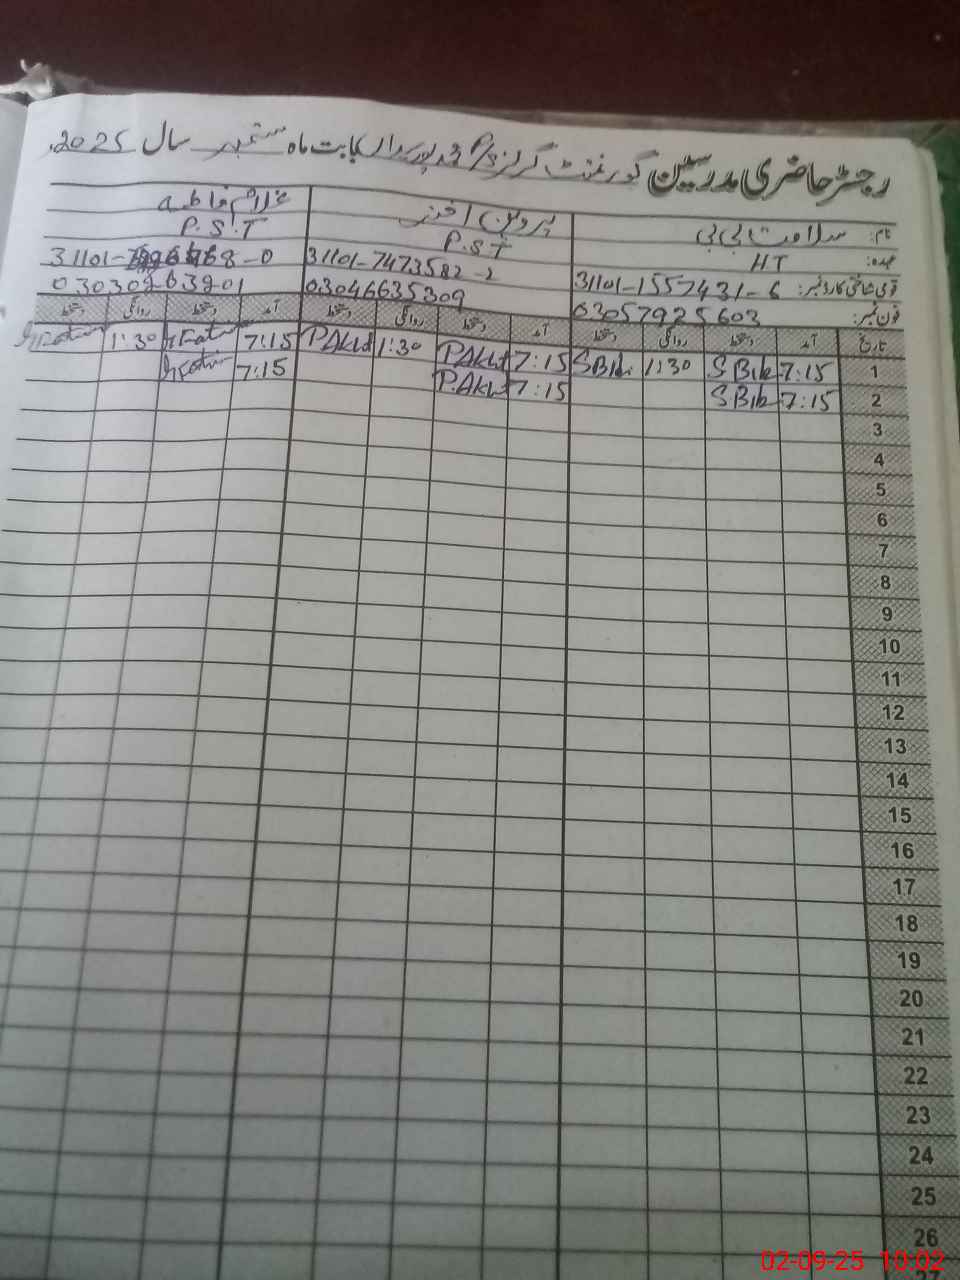 رجسٹر حاضری مدرسین گورنمنٹ گرلز بابت ماہ ستمبر سال 2025
نام: سلامت بی بی پروین اختر غلام فاطمہ
عہدہ: HT P.S.T P.S.T
قومی شناختی کارڈ نمبر: 31101-1557431-6 31101-7473582-2 31101-
فون نمبر: 03057925603 03046635309 03030963901
تاریخ آمد دستخط روانگی دستخط آمد دستخط روانگی دستخط آمد دستخط روانگی دستخط
1 7:15 S Bibi 1:30 S Bibi 7:15 P.Akht 1:30 P.Akht 7:15 1:30
2 7:15 S Bibi 7:15 P.Akht 7:15
3
4
5
6
7
8
9
10
11
12
13
14
15
16
17
18
19
20
21
22
23
24
25
26
27
02-09-25 10:02